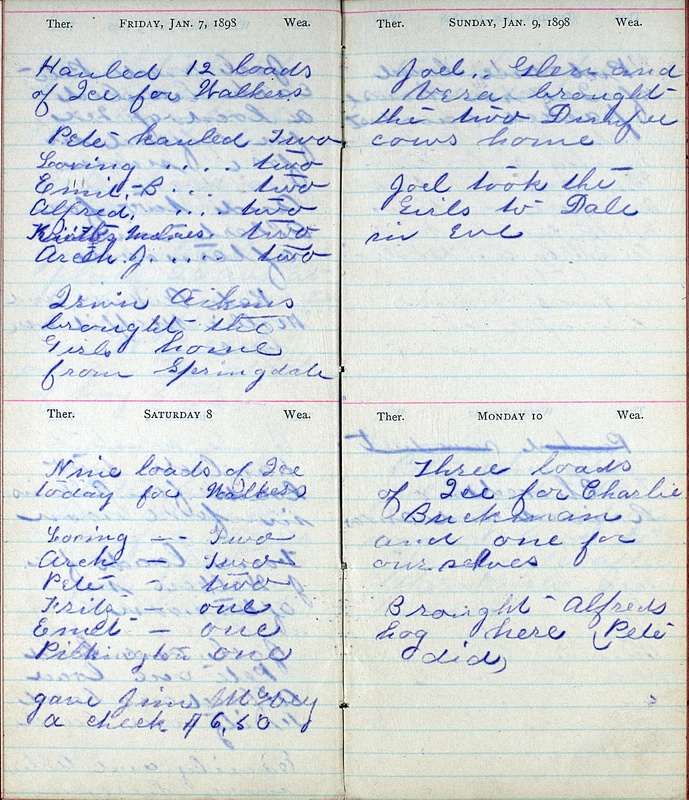 Ther. FRIDAY, JAN. 7, 1898 Wea.
Hauled 12 loads
of Ice for Walkers
Pete hauled Two
Loring .... two
Emil,-B... two
Alfred, .... two
two
Arch J. .... two
Irwin Aikins
brought the
Girls home
from Springdale
Ther. SATURDAY 8 Wea.
Nine loads of Ice
today for Walkers
Loring -- Two
Arch - Two
Pete - two
Fritz - one
Emil - one
Pilkington one
gave Jim
a check $6,50
Ther. SUNDAY, JAN. 9, 1898 Wea.
Joel, Glen and
Vera brought
the two
cows home
Joel took the
Girls to Dale
in Eve
Ther. MONDAY 10 Wea.
Three loads
of Ice for Charlie
Buckman
and one for
ourselves
Brought Alfreds
hog here (Pete
did)